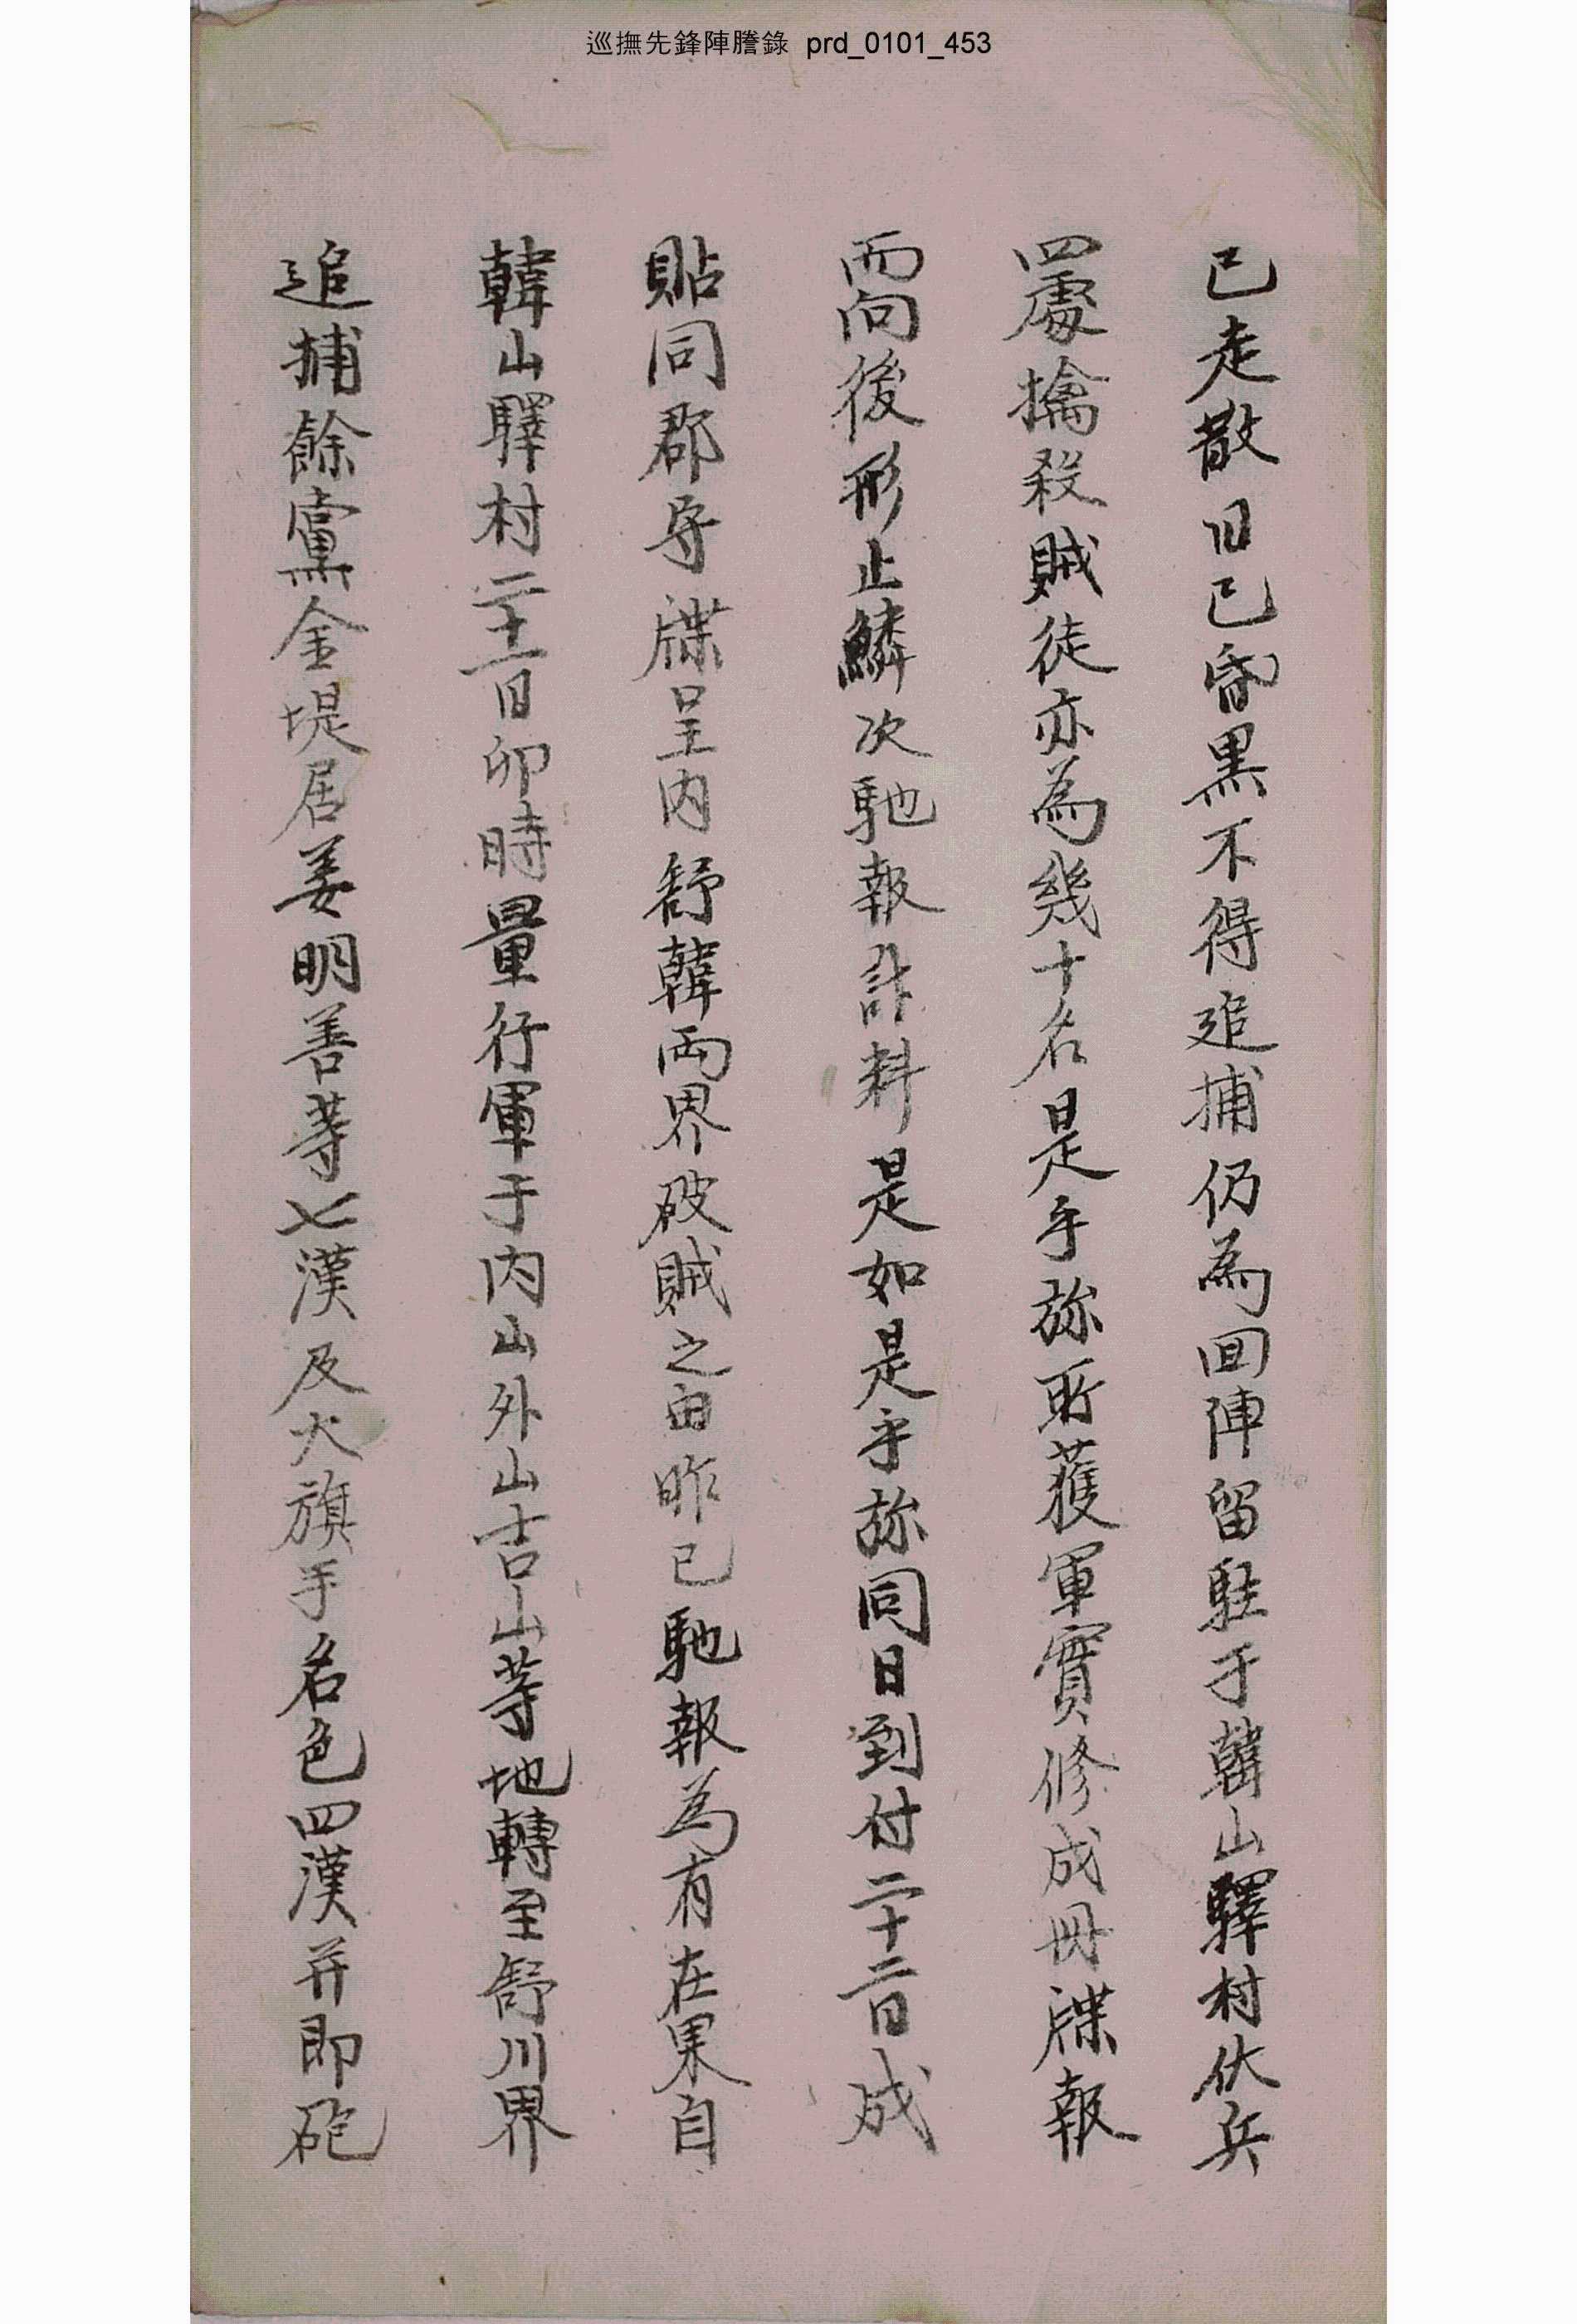 巡撫先鋒陣謄錄 prd_0101_453
已走散日已昏黑不得追捕仍為回陣留駐于韓山驛村伏兵
四處擒殺賊徒亦為幾十名是乎旀所獲軍實修成冊牒報
而向後形止鱗次馳報計料是如是乎旀同日到付二十二日成
貼同郡守牒呈內舒韓兩界破賊之由昨已馳報為有在果自
韓山驛村二十一日卯時量行軍于內山外山吉山等地轉至舒川界
追捕餘黨金堤居姜明善等七漢及大旗手名色四漢并即砲